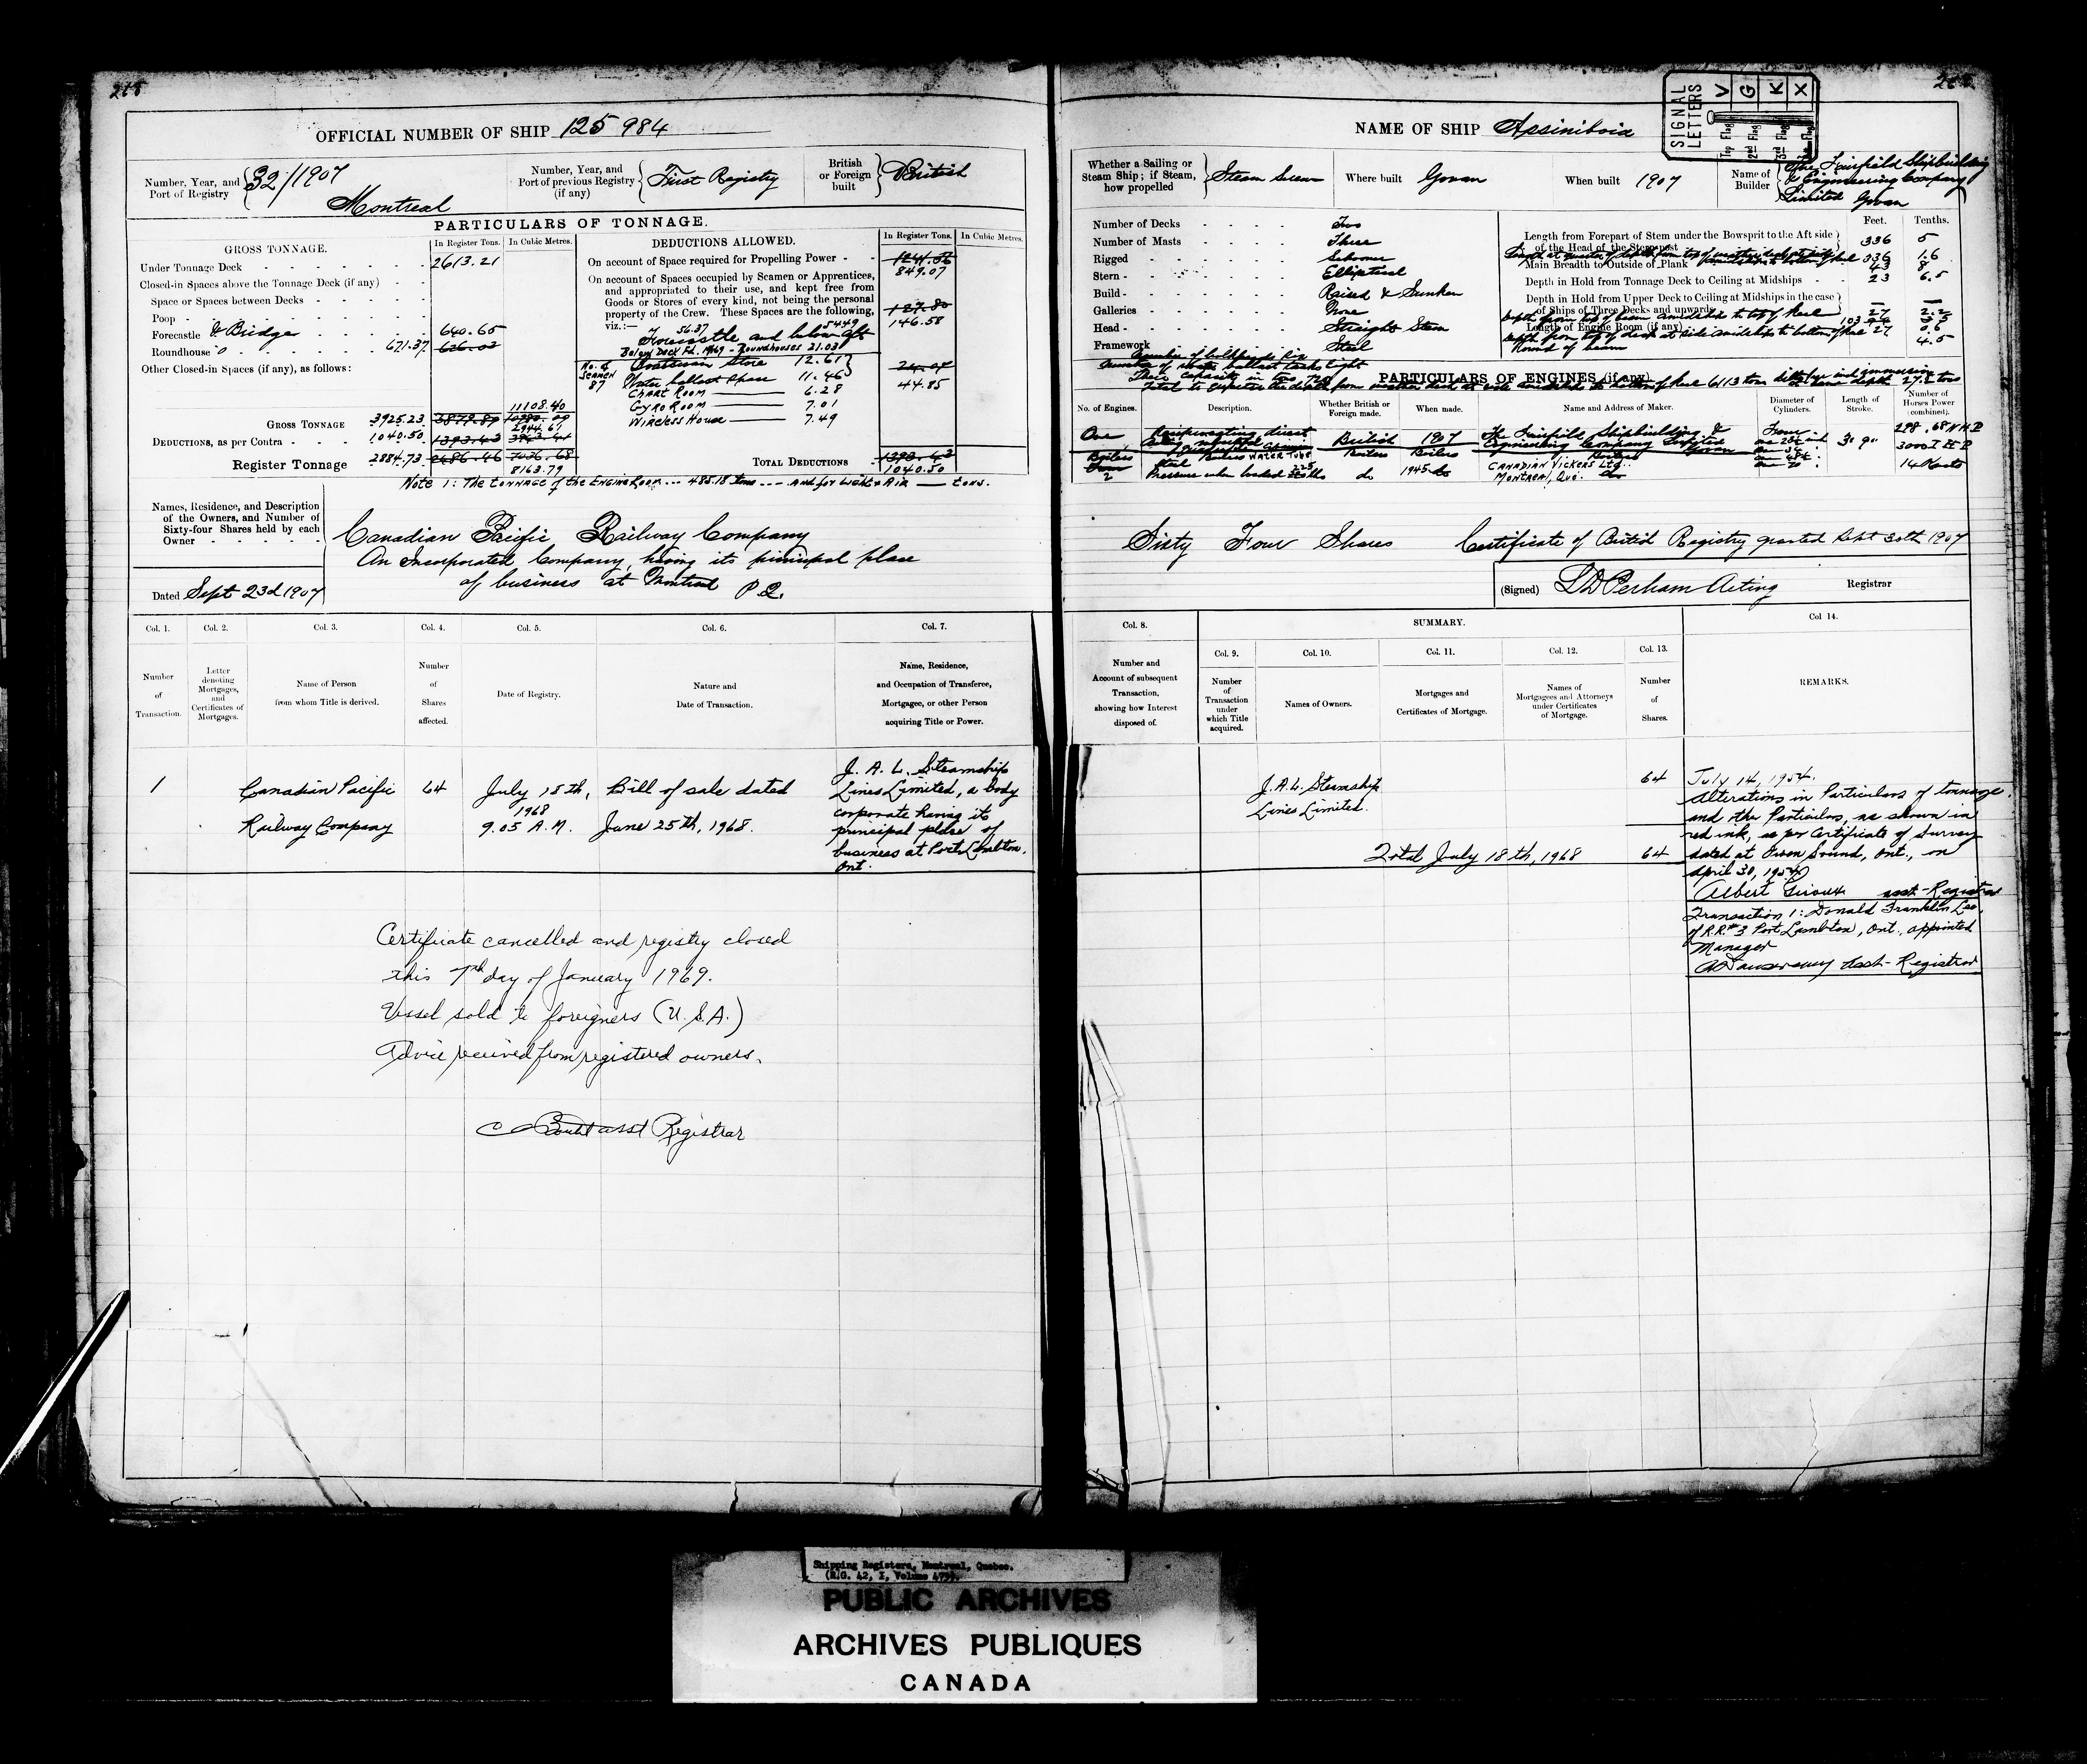 OFFICIAL NUMBER OF SHIP 125 984
Number, Year, and Port of Registry 32/1907
Montreal
Number, Year, and Port of previous Registry (if any) First Registry
British or Foreign built British
PARTICULARS OF TONNAGE.
GROSS TONNAGE.
In Register Tons. In Cubic Metres.
Under Tonnage Deck 2613.21
Closed-in Spaces above the Tonnage Deck (if any)
Space or Spaces between Decks
Poop
Forecastle & Bridge 640.65
Roundhouse 671.37
Other Closed-in Spaces (if any), as follows:
11108.40
GROSS TONNAGE 3925.23 3879.89
2944.61
DEDUCTIONS, as per Contra 1040.50 1393.43
Register Tonnage 2884.73 2486.46 7036.68
8163.79
DEDUCTIONS ALLOWED.
In Register Tons. In Cubic Metres.
On account of Space required for Propelling Power 1241.56
849.07
On account of Spaces occupied by Seamen or Apprentices,
and appropriated to their use, and kept free from
Goods or Stores of every kind, not being the personal
property of the Crew. These Spaces are the following,
viz.:—
146.58
56.37 54.49
Forecastle and below aft
Below Deck Fd. 14.69 - Roundhouses 21.03
No. of Seamen 87
Boatswain Store 12.61
Water ballast Space 11.46
44.85
CHART ROOM 6.28
GYRO ROOM 7.01
WIRELESS HOUSE 7.49
TOTAL DEDUCTIONS 1393.43
1040.50
Note 1: The tonnage of the Engine Room --- 485.18 tons --- and for Light & Air — tons.
Names, Residence, and Description
of the Owners, and Number of
Sixty-four Shares held by each
Owner
Canadian Pacific Railway Company
An Incorporated Company, having its principal place
of business at Montreal P.Q.
Dated Sept 23d 1907
Col. 1. Col. 2. Col. 3. Col. 4. Col. 5. Col. 6. Col. 7.
Number of Transaction.
Letter denoting Mortgages, and Certificates of Mortgages.
Name of Person from whom Title is derived.
Number of Shares affected.
Date of Registry.
Nature and Date of Transaction.
Name, Residence, and Occupation of Transferee, Mortgagee, or other Person acquiring Title or Power.
1
Canadian Pacific
Railway Company
64
July 18th,
1968
9.05 A.M.
Bill of sale dated
June 25th, 1968.
J. A. L. Steamship
Lines Limited, a body
corporate having its
principal place of
business at Port Lambton,
Ont.
Certificate cancelled and registry closed
this 7th day of January 1969.
Vessel sold to foreigners (U.S.A.)
Advice received from registered owners.
asst Registrar
NAME OF SHIP Assiniboia
SIGNAL LETTERS
V G K X
Top Flag 2nd Flag 3rd Flag
Whether a Sailing or Steam Ship; if Steam, how propelled Steam Screw
Where built Govan
When built 1907
Name of Builder The Fairfield Shipbuilding
& Engineering Company
Limited Govan
Number of Decks Two
Number of Masts Three
Rigged Schooner
Stern Elliptical
Build Raised & Sunken
Galleries None
Head Straight Stem
Framework Steel
Feet. Tenths.
Length from Forepart of Stem under the Bowsprit to the Aft side
of the Head of the Sternpost 336 5
336 1.6
Main Breadth to Outside of Plank 43 8
Depth in Hold from Tonnage Deck to Ceiling at Midships 23 6.5
Depth in Hold from Upper Deck to Ceiling at Midships in the case
of Ships of Three Decks and upwards
Depth from top of beam amidships to top of keel 27 2.2
Length of Engine Room (if any)
Depth from top of deck at side amidships to bottom of keel 27 0.6
Round of beam 4.5
Number of bulkheads Six
Number of water ballast tanks Eight
PARTICULARS OF ENGINES (if any).
No. of Engines. Description. Whether British or Foreign made. When made. Name and Address of Maker. Diameter of Cylinders. Length of Stroke. Number of Horses Power (combined).
One British 1907 The Fairfield Shipbuilding &
Engineering Company Limited
Govan
3' 9"
298.68 N H P
3000 I H P
14 Knots
Boilers
2
WATER TUBE
Pressure when loaded 225 lbs
do 1945
CANADIAN VICKERS LTD.
MONTREAL, QUE.
Sixty Four Shares Certificate of British Registry granted Sept 30th 1907
(Signed) Perham Acting Registrar
Col. 8. SUMMARY. Col 14.
Col. 9. Col. 10. Col. 11. Col. 12. Col. 13.
Number and Account of subsequent Transaction, showing how Interest disposed of.
Number of Transaction under which Title acquired.
Names of Owners.
Mortgages and Certificates of Mortgage.
Names of Mortgagees and Attorneys under Certificates of Mortgage.
Number of Shares.
REMARKS.
J.A.L. Steamship
Lines Limited.
64
Total July 18th, 1968 64
July 14, 1954.
Alterations in Particulars of tonnage
and other Particulars, as shown in
red ink, as per Certificate of Survey
dated at Owen Sound, Ont., on
April 30, 1954
Albert Giroux asst-Registrar
Transaction 1: Donald Franklin Lee,
of R.R.#3 Port Lambton, Ont., appointed
Manager
Asst-Registrar
Shipping Registers, Montreal, Quebec.
(R.G. 42, I, Volume
PUBLIC ARCHIVES
ARCHIVES PUBLIQUES
CANADA